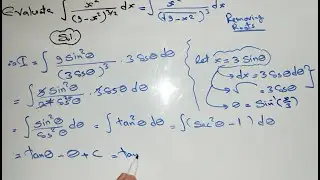 Evaluate ∫ x²/(9-x²)^{3/2} dx = ∫ x²/(√9-x²)³ dx
Removing Roots
Sol
∴ I = ∫ 9 sin²θ/(3 cosθ)³ · 3 cosθ dθ
let x = 3 sinθ
→ dx = 3 cosθ dθ
→ θ = sin⁻¹(x/3)
= ∫ sin²θ/cos²θ dθ = ∫ tan²θ dθ = ∫ (sec²θ - 1) dθ
= tanθ - θ + C = tan